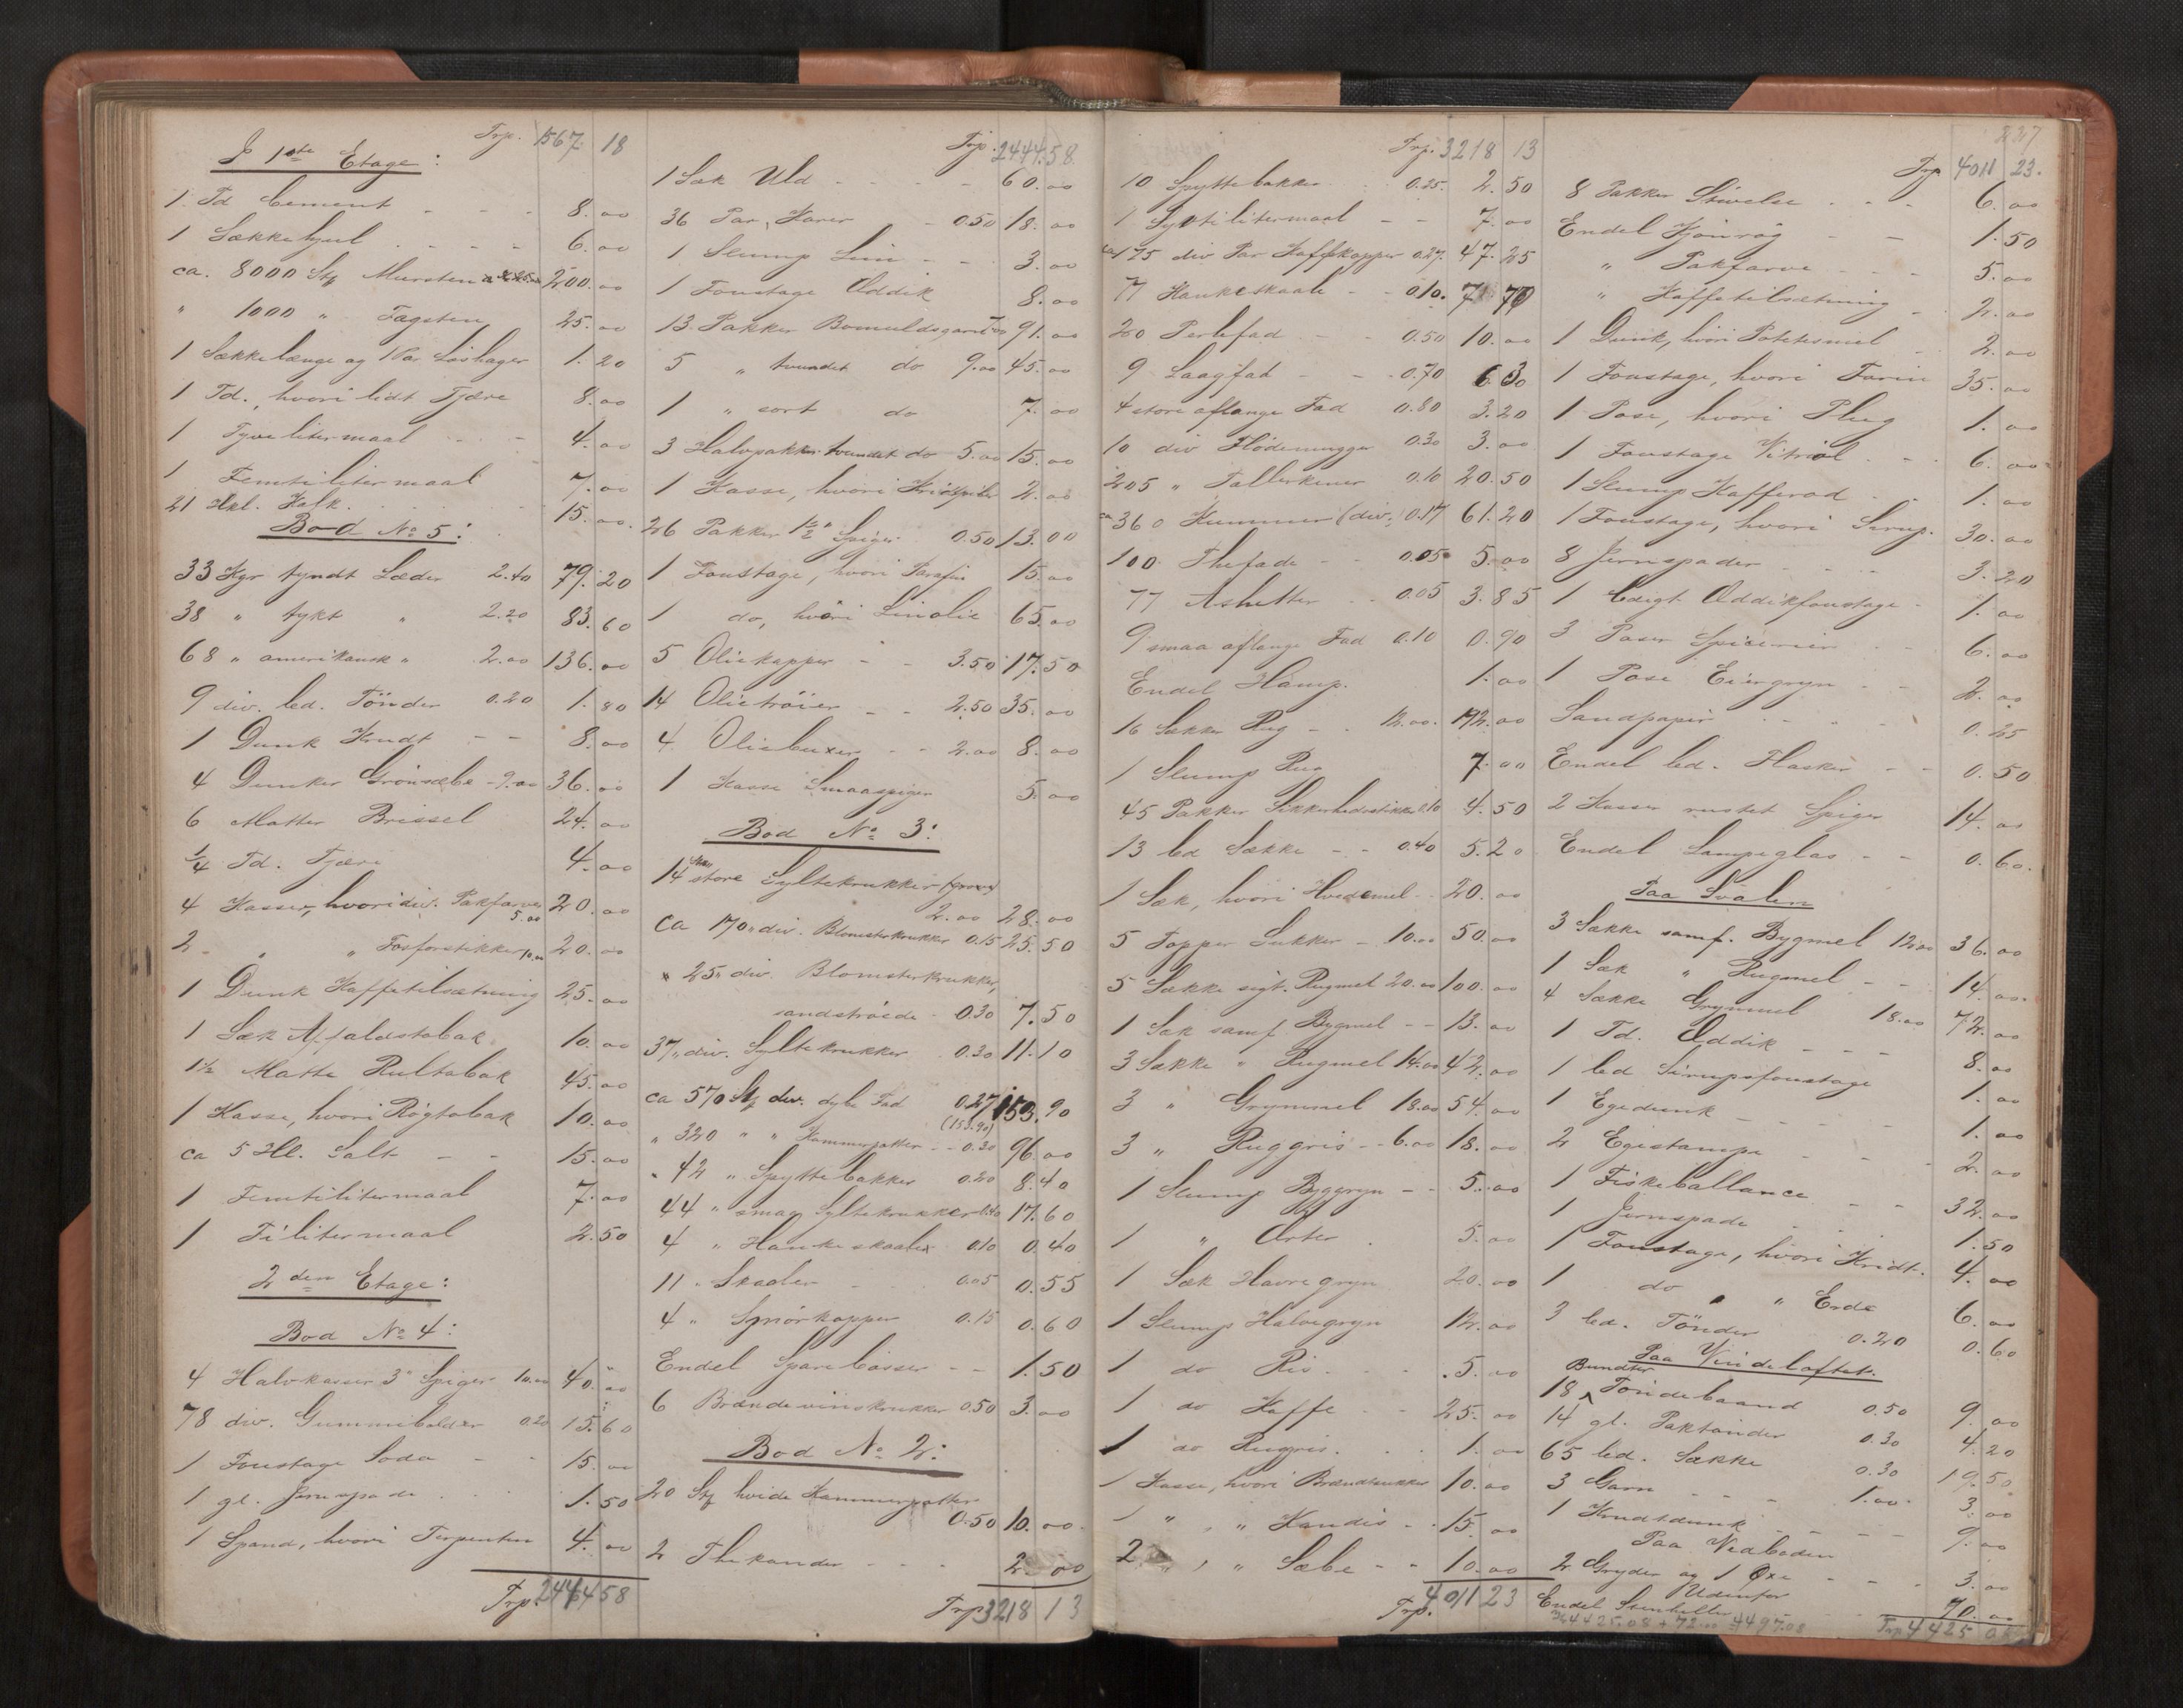 Trp. 1567 18
I 1ste Etage:
1 Td Cement - - - 8.00
1 Sækkehjul - - - - 6.00
ca. 8000 Stk Mursten a 25.00 200.00
" 1000 " Tagsten 25.00
1 Sækkelænge og 1 Par Loshager 1.20
1 Td., hvori lidt Tjære 8.00
1 Tyvelitermaal - - - 4.00
1 Femtilitermaal 7.00
21 Hkl. Kalk. 15.00.
Bod No 5:
33 Kgr tyndt Læder 2.40 79.20
38 " tykt " 2.20 83.60
68 " amerikansk " 2.00 136.00
9 div. led. Tönder 0.20 1.80
1 Dunk Krudt - - 8.00
4 Dunker Grönsæbe - 9.00 36.00
6 Matter Brissel 24.00
1/4 Td. Tjære 4.00
4 Kasser, hvori div. Pakfarver 5.00 20.00
2 " " Fosforstikker 10.00 20.00
1 Dunk Kaffetilsætning 25.00
1 Sæk Affaldstobak 10.00
1 1/2 Matte Rultobak 45.00
1 Kasse, hvori Rögtobak 10.00
ca 5 Hl. Salt - - 15.00
1 Femtilitermaal 7.00
1 Tilitermaal 2.50
2den Etage:
Bod No 4:
4 Halvkasser 3" Spiger 10.00 40.00
78 div. Gummibolder 0.20 15.60
1 Foustage Soda - - 15.00
1 gl. Jernspade 1.50
1 Spand, hvori Terpentin 4.00
Trp. 2444 58
Trp. 2444.58.
1 Sæk Uld - - - - 60.00
36 Par Karer - 0.50 18.00
1 Slump Lim - - 3.00
1 Foustage Eddik 8.00
13 Pakker Bomuldsgarn 7.00 91.00
5 " tvundet do 9.00 45.00
1 " sort do 7.00
3 Halvpakker tvundet do 5.00 15.00
1 Kasse, hvori 2.00
26 Pakker 1 1/2" Spiger 0.50 13.00
1 Foustage, hvori Parafin 15.00
1 do, hvori Linolie 65.00
5 Oliekapper - - 3.50 17.50
14 Olietröier - - 2.50 35.00
4 Oliebuxer - - 2.00 8.00
1 Kasse Smaaspiger 5.00
Bod No 3:
14 Stk. store Syltekrukker (grove)
2.00 28.00
ca 170 " div. Blomsterkrukker 0.15 25.50
" 25 " div. Blomsterkrukker,
sandströede - 0.30 7.50
37 " div. Syltekrukker 0.30 11.10
ca 570 Stk div. dybe Fad 0.27 153.90
(153.90)
" 320 " " Kammerpotter - - 0.30 96.00
" 42 " Spyttebakker 0.20 8.40
44 " smaa Syltekrukker 0.40 17.60
4 " Hankeskaaler 0.10 0.40
11 " Skaaler 0.05 0.55
4 " Smörkopper 0.15 0.60
Endel Sparebösser - - 1.50
6 Brændevinskrukker 0.50 3.00
Bod No 2:
20 Stk hvide Kammerpotter
0.50 10.00.
2 Thekander - - - 2.00
Trp 3218 13
Trp. 3218 13
10 Spyttebakker 0.25. 2.50
1 Syttilitermaal - - 7.00
ca 175 div Par Kaffekopper 0.27. 47.25
77 Hankeskaale - - 0.10. 7.70
20 Perlefad - - 0.50 10.00
9 Laagfad - - 0.70 6 30
4 store aflange Fad 0.80 3.20
10 div Flödemugger 0.30 3.00
205 " Tallerkener 0.10 20.50
ca 360 Kummer (div.) 0.17 61.20
100 Thefade - - 0.05 5.00
77 Ashetter - - 0.05 3.85
9 smaa aflange Fad 0.10 0.90
Endel Hamp. 1.00
16 Sækker Rug - - 12.00. 192.00
1 Slump Rug 7.00
45 Pakker Sikkerhedsstikker 0.10 4.50
13 led Sække - - 0.40 5.20
1 Sæk, hvori Hvedemel - 20.00
5 Topper Sukker - 10.00 50.00
5 Sække sigt. Rugmel 20.00 100.00
1 Sæk samf Bygmel - - 13.00
3 Sække " Rugmel 14.00 42.00
3 " Grynmel 18.00 54.00
3 " Ruggris - - 6.00 18.00
1 Slump Byggryn - - 5.00
1 " Erter 5.00
1 Sæk Havregryn 20.00
1 Slump Halvegryn 12.00
1 do Ris - - 5.00
1 do Kaffe - - 25.00
1 do Rugris. 1.00
1 Kasse, hvori Brændsukker 10.00
1 " " Kandis - 15.00
2 " " Sæbe - - 10.00
Trp. 4011 23
237
Trp 4011 23.
8 Pakker Stivelse - - - 6.00
Endel Kjönrög - - 1.50
" Pakfarve - - - 5.00
" Kaffetilsætning - 2.00
1 Dunk, hvori Potetesmel 2.00
1 Foustage, hvori Farin 35.00
1 Pose, hvori Plug 1.00
1 Foustage Vitriol - - 6.00
1 Slump Kafferod - - 1.00
1 Foustage, hvori Sirup. 30.00
8 Jernspader - - - 3.20
1 ledigt Eddikfoustage - 1.00
3 Poser Spicerier 6.00
1 Pose Eiergryn - - 2.00
Sandpapir - - - 0.25
Endel led. Flasker - - 0.50
2 Kasser rustet Spiger 14.00
Endel Lampeglas - - 0.60.
Paa Svalen
3 Sække samf. Bygmel 12.00 36.00
1 Sæk " Rugmel - - 14.00.
4 Sække Grynmel 18.00 72.00
1 Td. Eddik - - - 8.00
1 led Sirupsfoustage 1.00
1 Egedunk - - - - 1.00
2 Egestampe - - - 2.00
1 Fiskeballance - - 32.00
1 Jernspade - - 1.50
1 Foustage, hvori Kridt. 4.00
1 do " " Erde 6.00
3 led. Tönder 0.20 0.60
Paa Vindeloftet.
18 Bundter Töndebaand 0.50 9.00
14 gl. Paktönder 0.30 4.20
65 led. Sække 0.30 19.50
3 Garn - - - 1.00. 3.00
1 Krudtdunk - - - - 9.00
Paa Vedboden
2 Gryder og 1 Öxe - - - 3.00
Udenfor
Endel Stenheller 70.00
4425.08 + 72.00 = 4497.08
Trp 4425 08